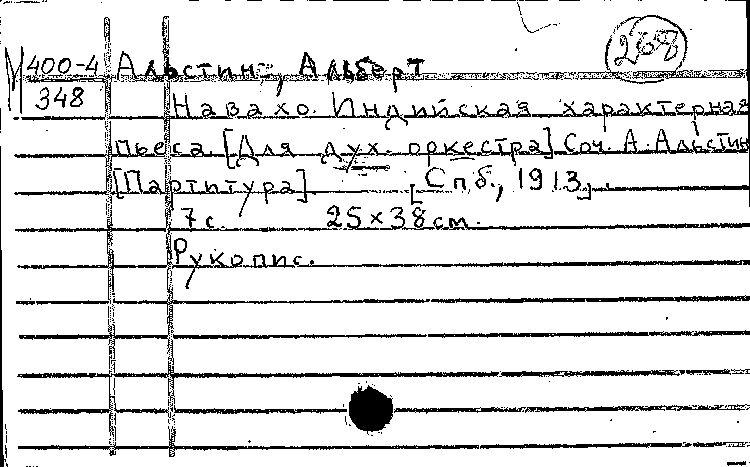 268
М 400-4 Альстин, Альберт
348
Навахо. Индийская характерная
пьеса. [Для дух. оркестра] Соч. А. Альстин
[Партитура]. [Спб., 1913].
7 с. 25×38 см.
Рукопис.